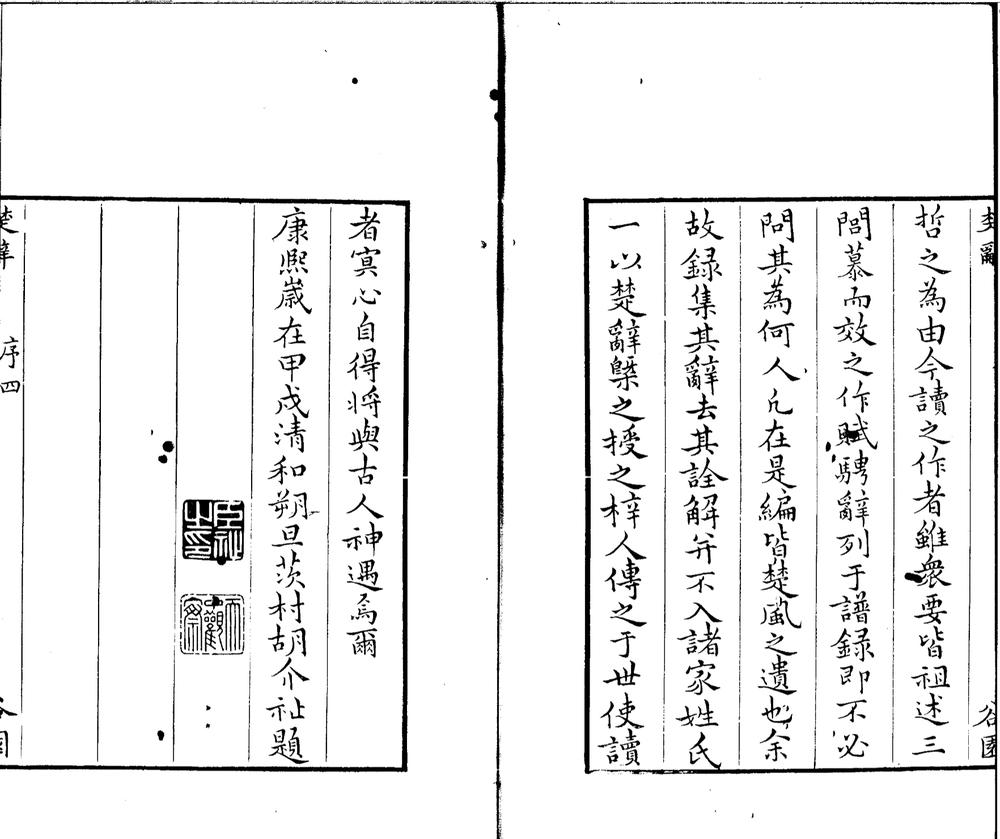 楚辭
谷園
哲之為由今讀之作者雖衆要皆祖述三
閭慕而效之作賦騁辭列于譜録即不必
問其為何人凡在是編皆楚風之遺也余
故録集其辭去其詮解并不入諸家姓氏
一以楚辭槩之授之梓人傳之于世使讀
者寞心自得將與古人神遇焉爾
康熈嵗在甲戌清和朔旦茨村胡介祉題
楚辭
序四
谷園